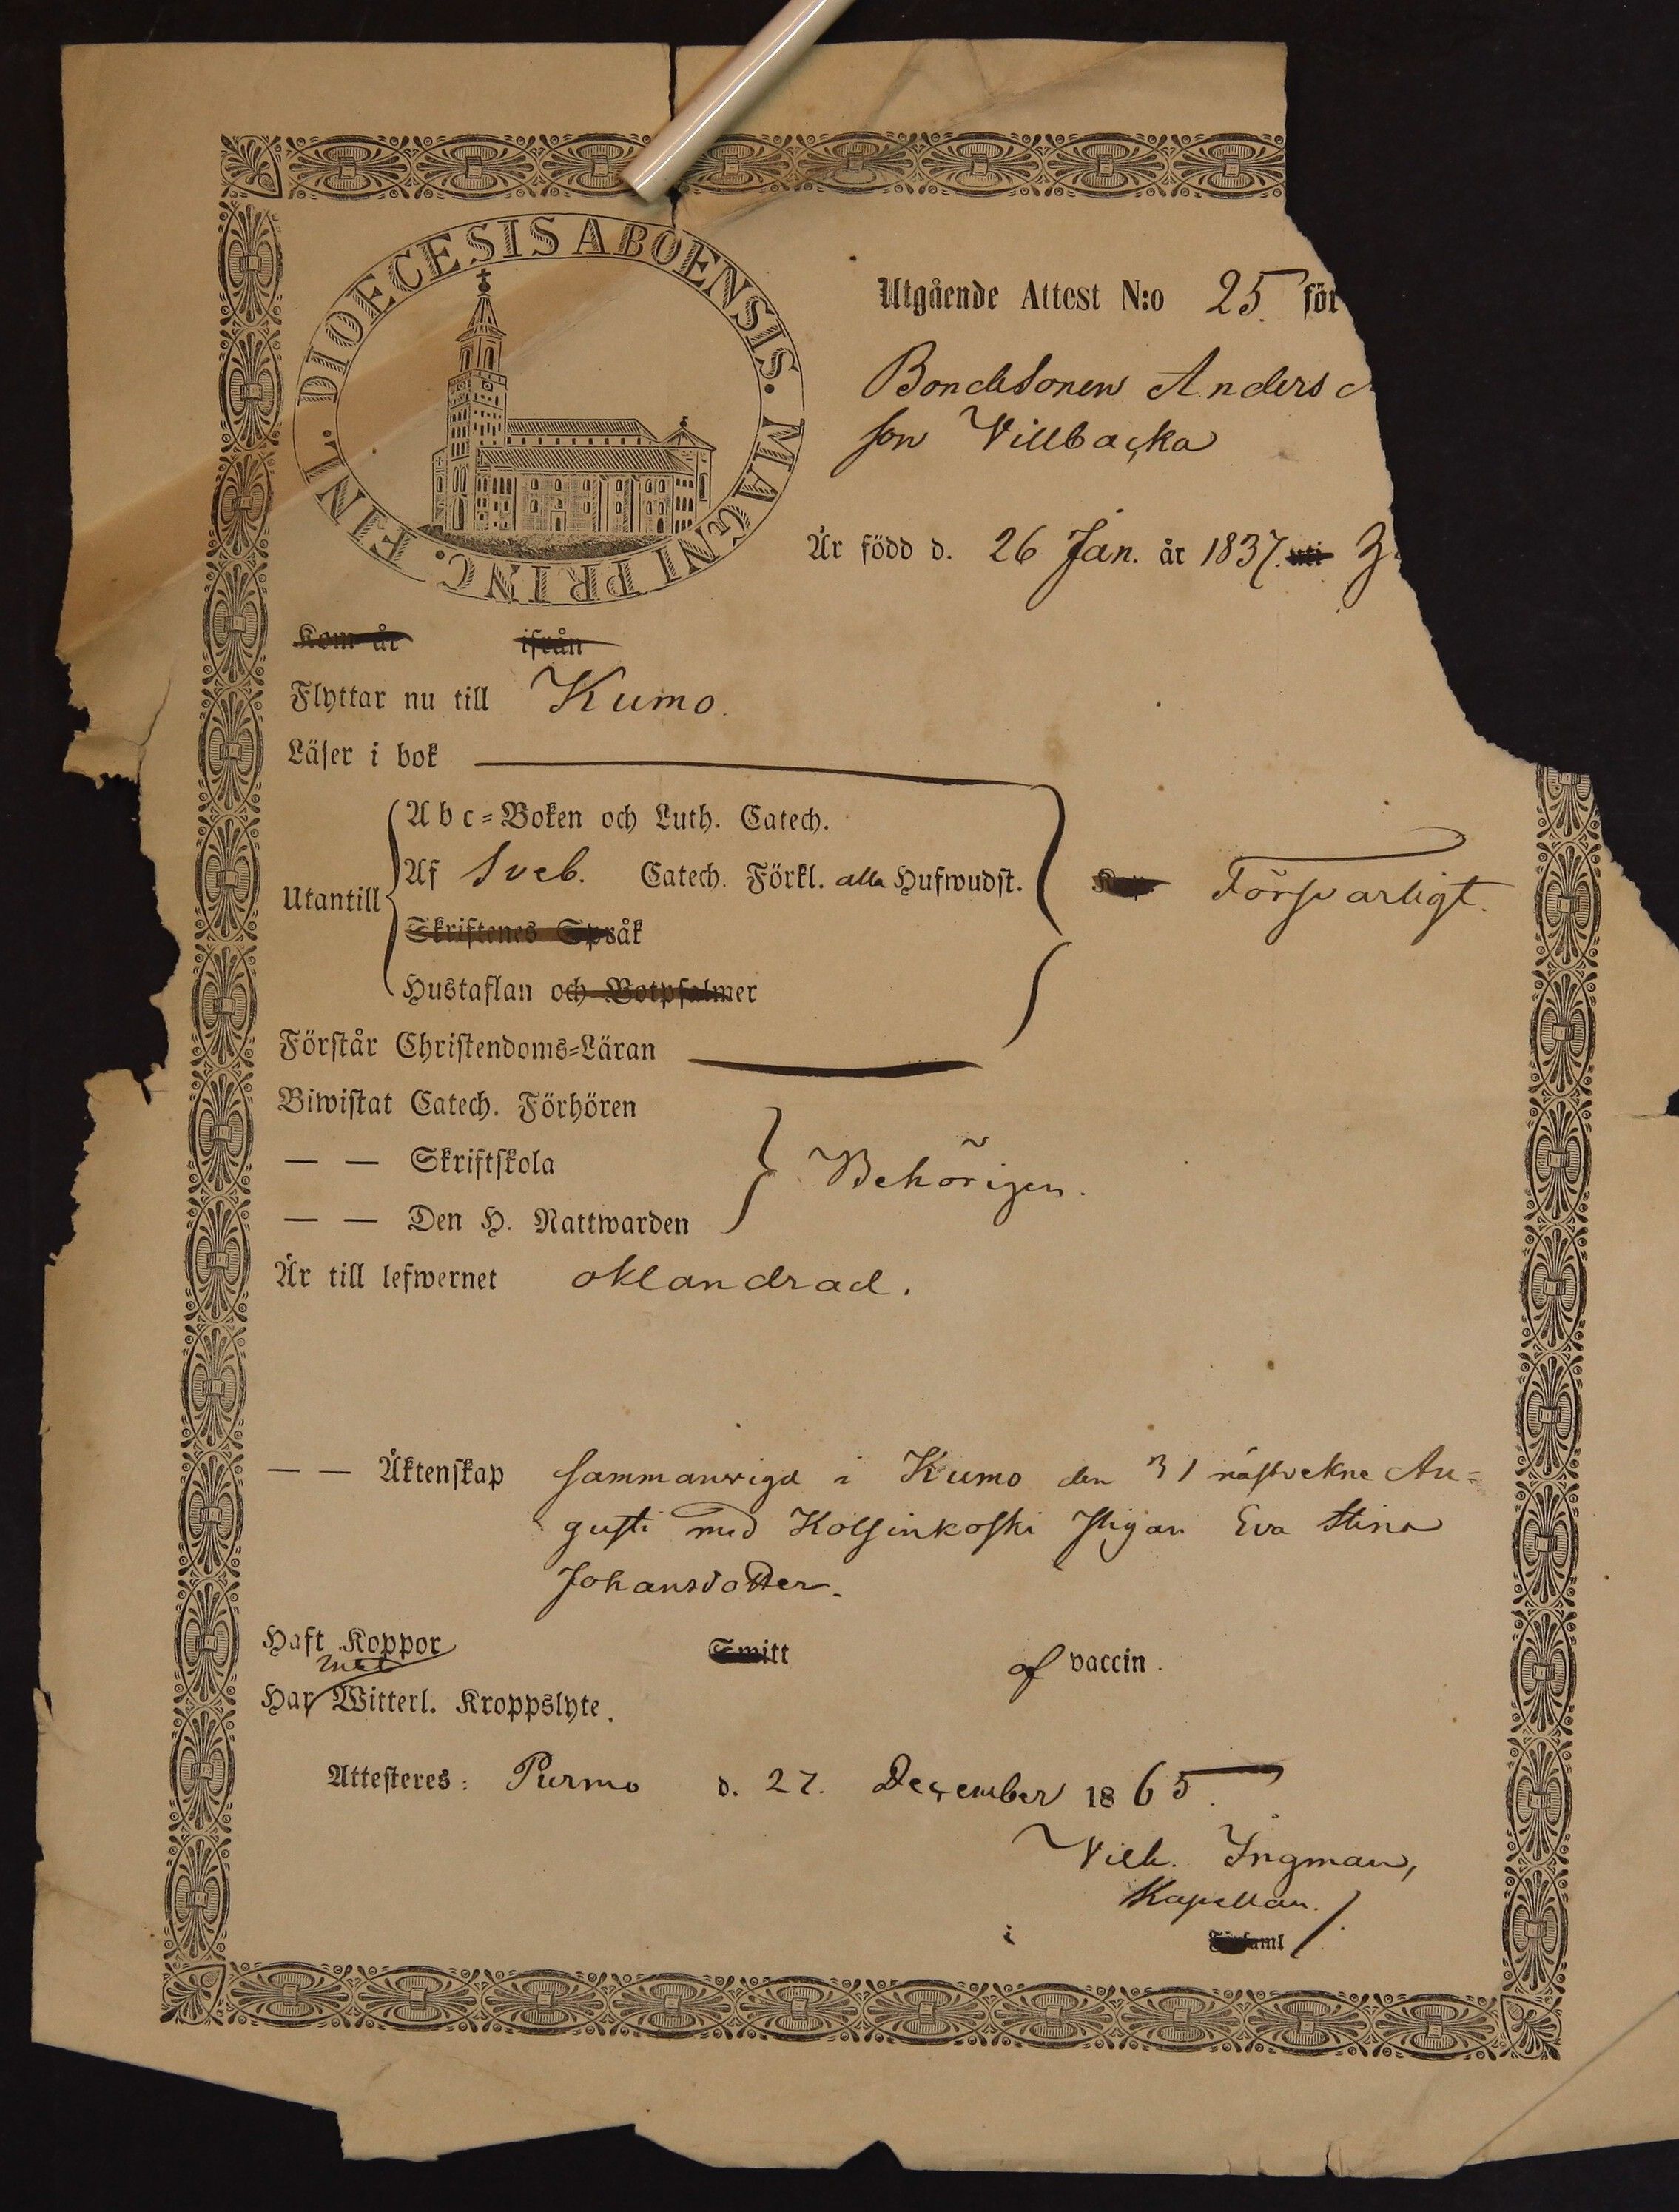 DIOECESIS ABOENSIS. MAGNI PRINC. FINL.
Utgående Attest N:o 25. för
Bondesonen Anders
son Villbacka
Är född d. 26 Jan. år 1837. uti
Kom år ifrån
Flyttar nu till Kumo.
Läser i bok
Utantill
Abc=Boken och Luth. Catech.
Af Sveb. Catech. Förkl. alla Hufwudst. Försvarligt.
Skriftenes Språk
Hustaflan och Botpsalmer
Förstår Christendoms=Läran
Biwistat Catech. Förhören
— — Skriftskola Behörigen.
— — Den H. Nattwarden
Är till lefwernet oklandrad.
— — Äktenskap sammanvigd i Kumo den 31 nästvekne Au=
gusti med Kolsinkoski Pigan Eva Stina
Johansdotter.
Haft Koppor Smitt af vaccin.
Har Witterl. Kroppslyte.
Attesteres: Purmo d. 27. December 1865.
Vilh. Ingman,
Kapellan.
i Församl